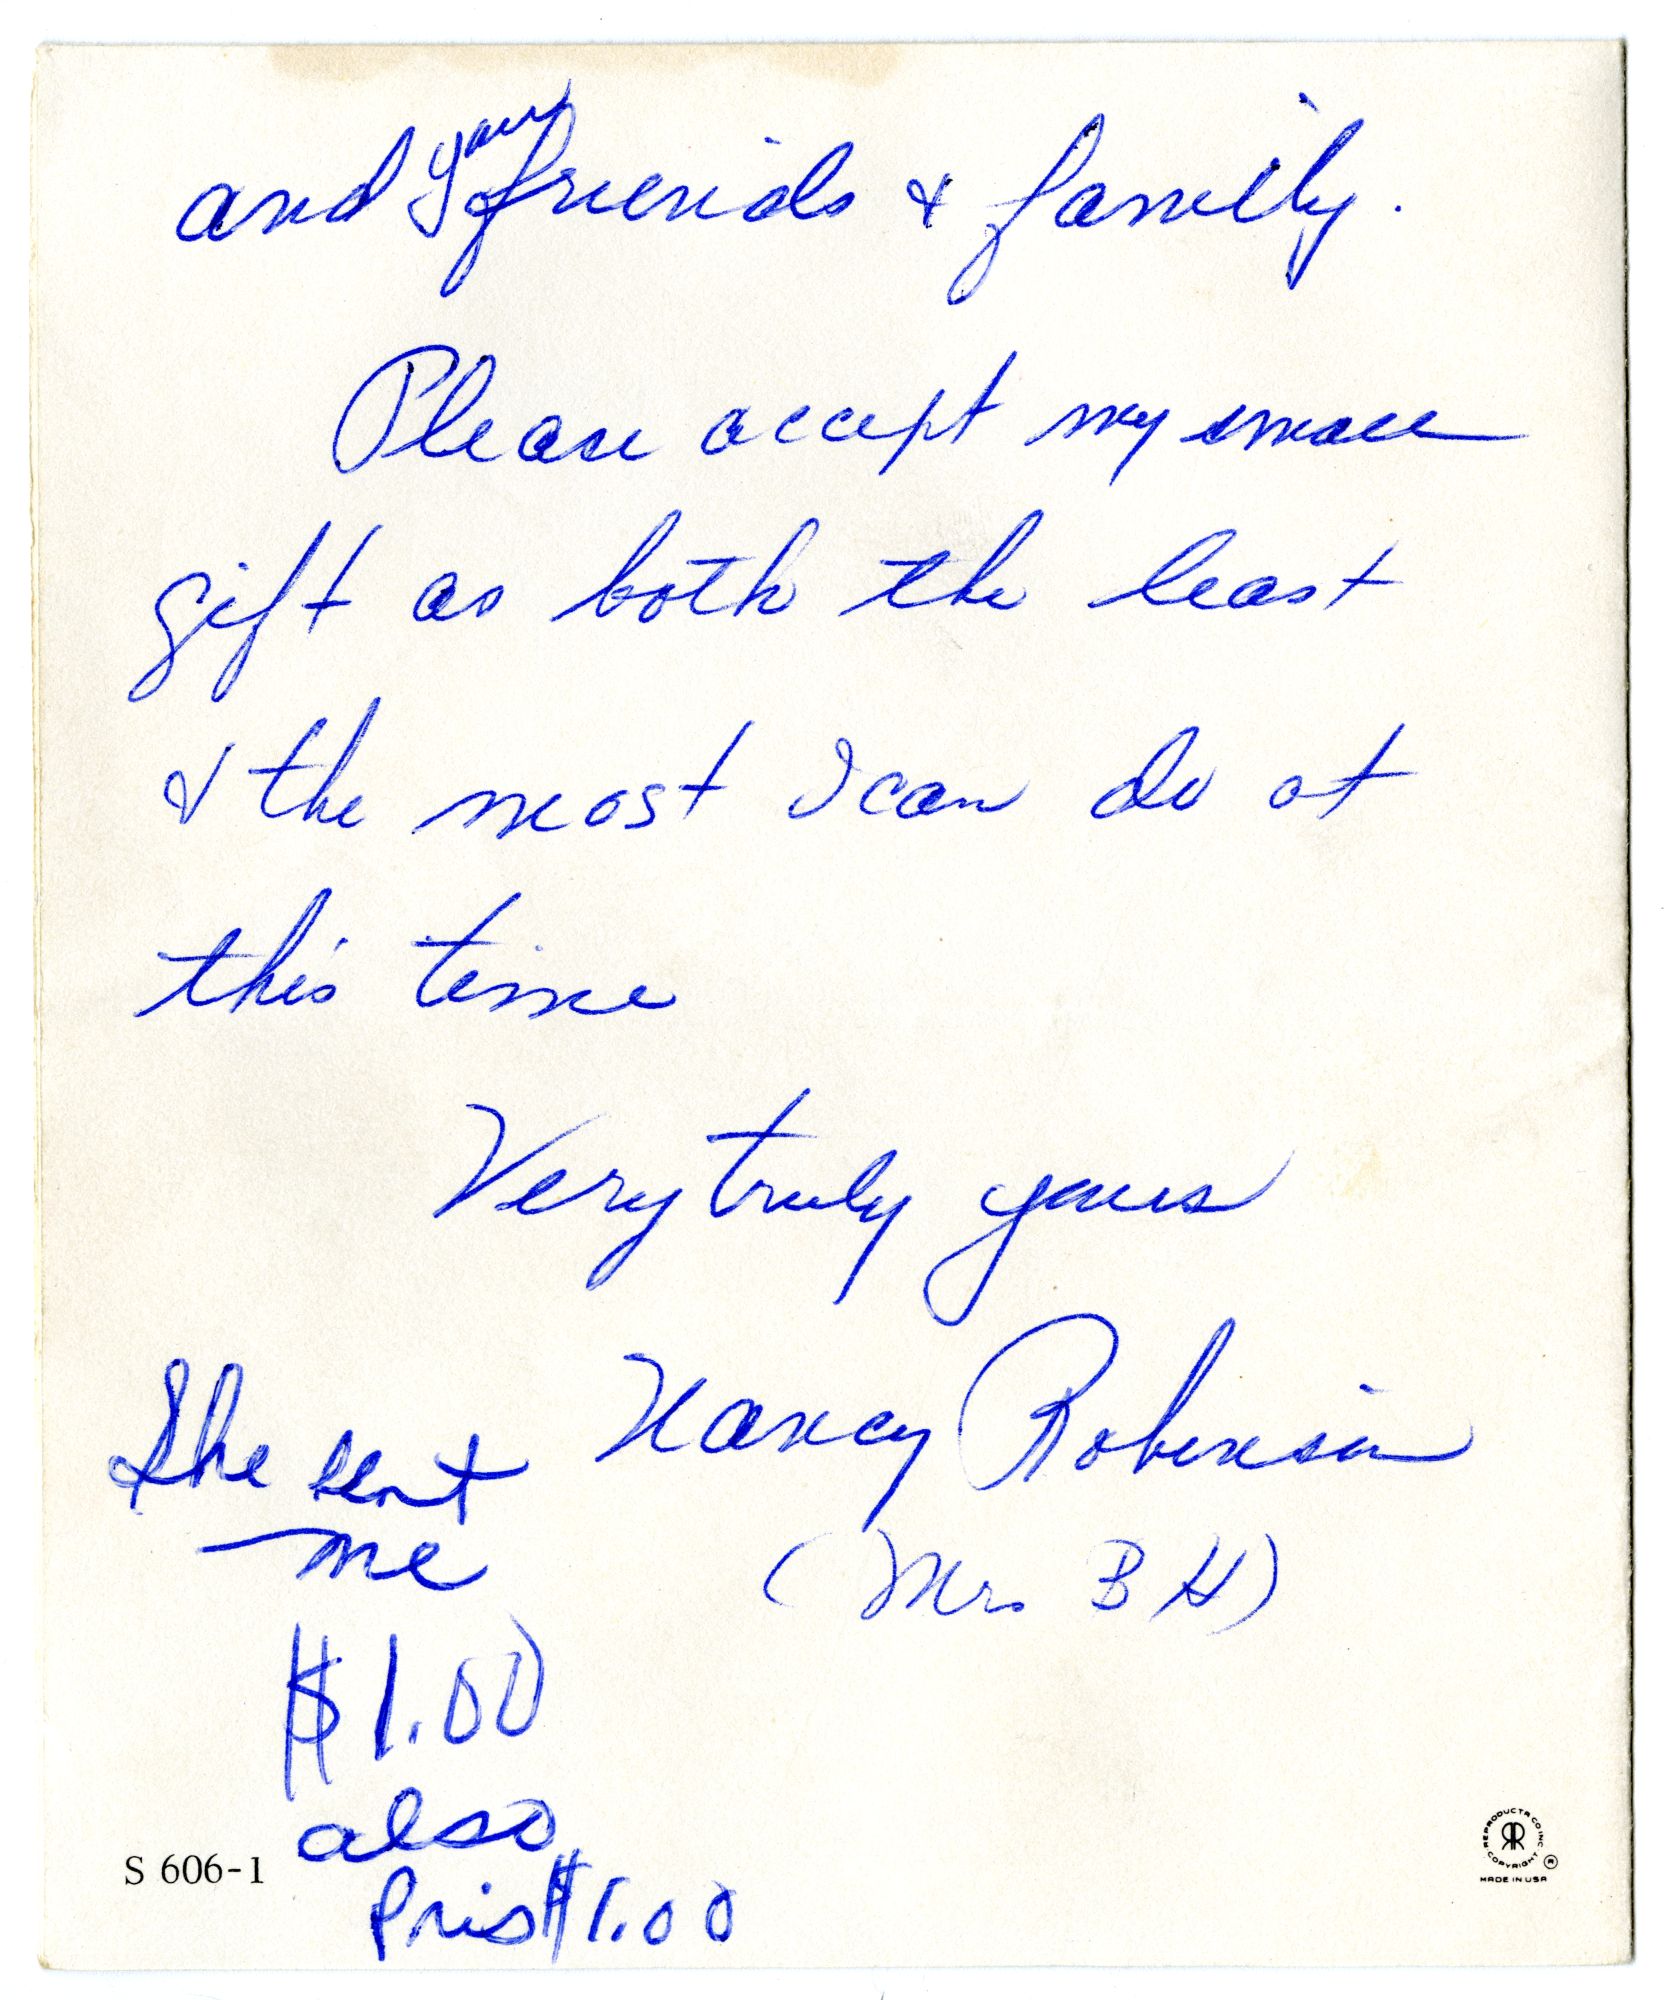 and your friends & family.
Please accept my small
gift as both the least
& the most I can do at
this time
Very truly yours
Nancy Robinson
(Mrs B H)
She sent
me
$1.00
also
Pris $1.00
S 606-1
REPRODUCTA CO INC
COPYRIGHT
®
MADE IN USA